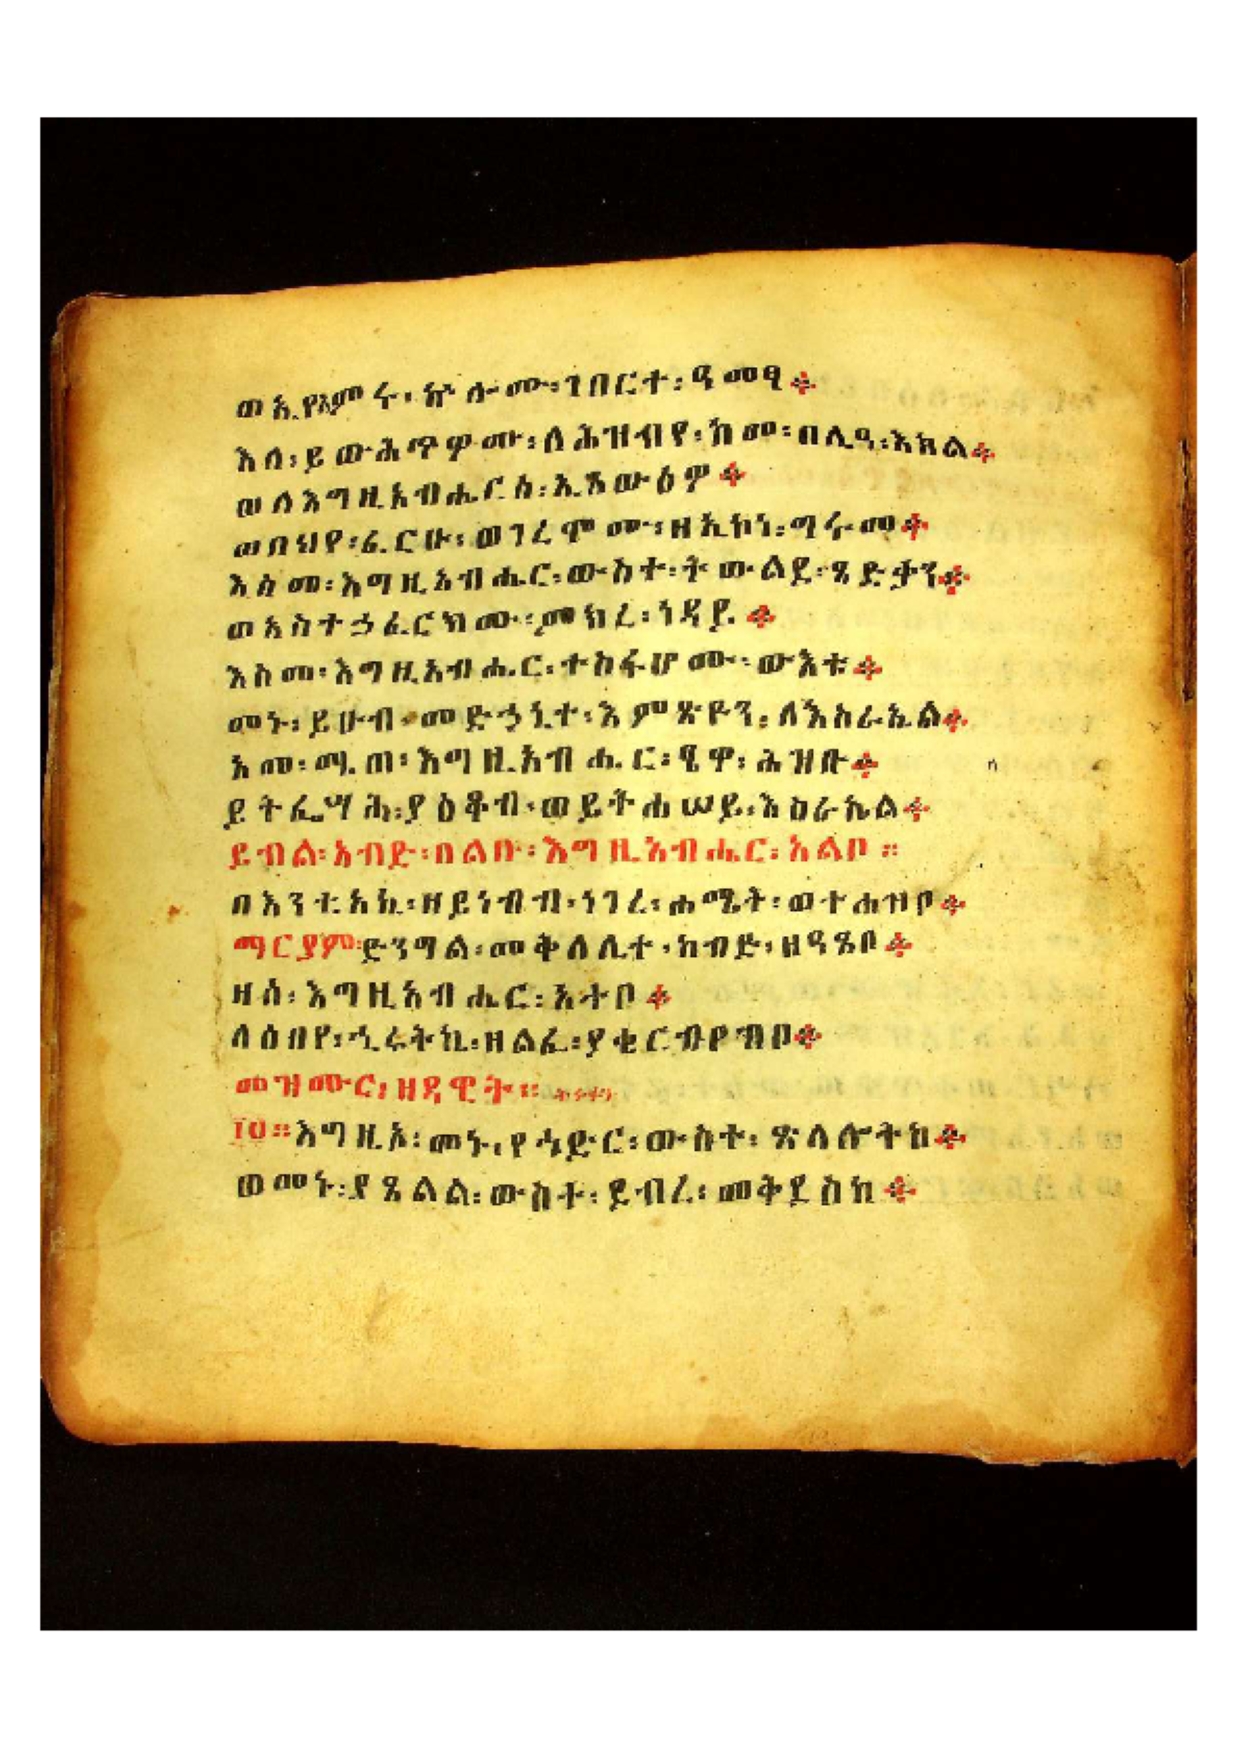 ወኢየአምሩ፡ ኵሎሙ፡ ገበርተ፡ ዓመፃ።
እለ፡ ይውሕጥዎሙ፡ ለሕዝብየ፡ ከመ፡ በሊዓ፡ እክል።
ወለእግዚአብሔርሰ፡ ኢጸውዕዎ።
ወበህየ፡ ፈርሁ፡ ወገረሞሙ፡ ዘኢኮነ፡ ግሩመ።
እስመ፡ እግዚአብሔር፡ ውስተ፡ ትውልደ፡ ጻድቃን።
ወአስተኃፈርክሙ፡ ምክረ፡ ነዳይ።
እስመ፡ እግዚአብሔር፡ ተስፋሆሙ፡ ውእቱ።
መኑ፡ ይሁብ፡ መድኃኒተ፡ እምጽዮን፡ ለእስራኤል።
አመ፡ ሜጠ፡ እግዚአብሔር፡ ፄዋ፡ ሕዝቡ።
ይትፌሣሕ፡ ያዕቆብ፡ ወይትሐሠይ፡ እስራኤል።
ይብል፡ አብድ፡ በልቡ፡ እግዚአብሔር፡ አልቦ።
በእንቲአኪ፡ ዘይነብብ፡ ነገረ፡ ሐሜት፡ ወተሐዝቦ።
ማርያም፡ ድንግል፡ መቅለሊተ፡ ክብድ፡ ዘዓጸቦ።
ዘሰ፡ እግዚአብሔር፡ አትቦ።
ለዕበየ፡ ኂሩትኪ፡ ዘልፈ፡
መዝሙር፡ ዘዳዊት።
፲፬። እግዚኦ፡ መኑ፡ የኃድር፡ ውስተ፡ ጽላሎትከ።
ወመኑ፡ ያጼልል፡ ውስተ፡ ደብረ፡ መቅደስከ።